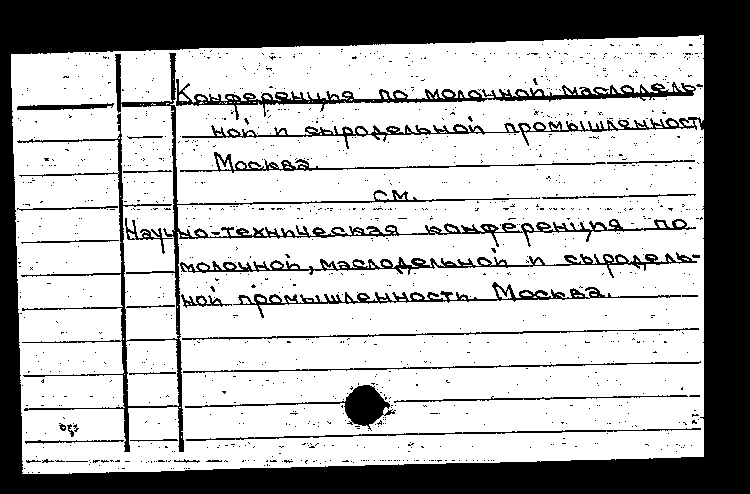 Конференция по молочной, маслодель-
ной и сыродельной промышленности
Москва.
см.
Научно-техническая конференция по
молочной, маслодельной и сыродель-
ной промышленности. Москва.